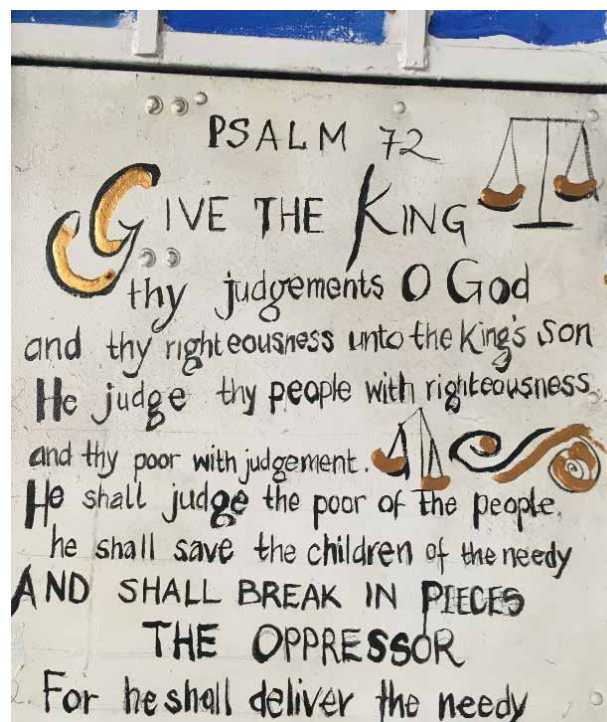 PSALM 72
GIVE THE KING
thy judgements O God
and thy righteousness unto the king's son
He judge thy people with righteousness
and thy poor with judgement.
He shall judge the poor of the people,
he shall save the children of the needy
AND SHALL BREAK IN PIECES
THE OPPRESSOR
For he shall deliver the needy